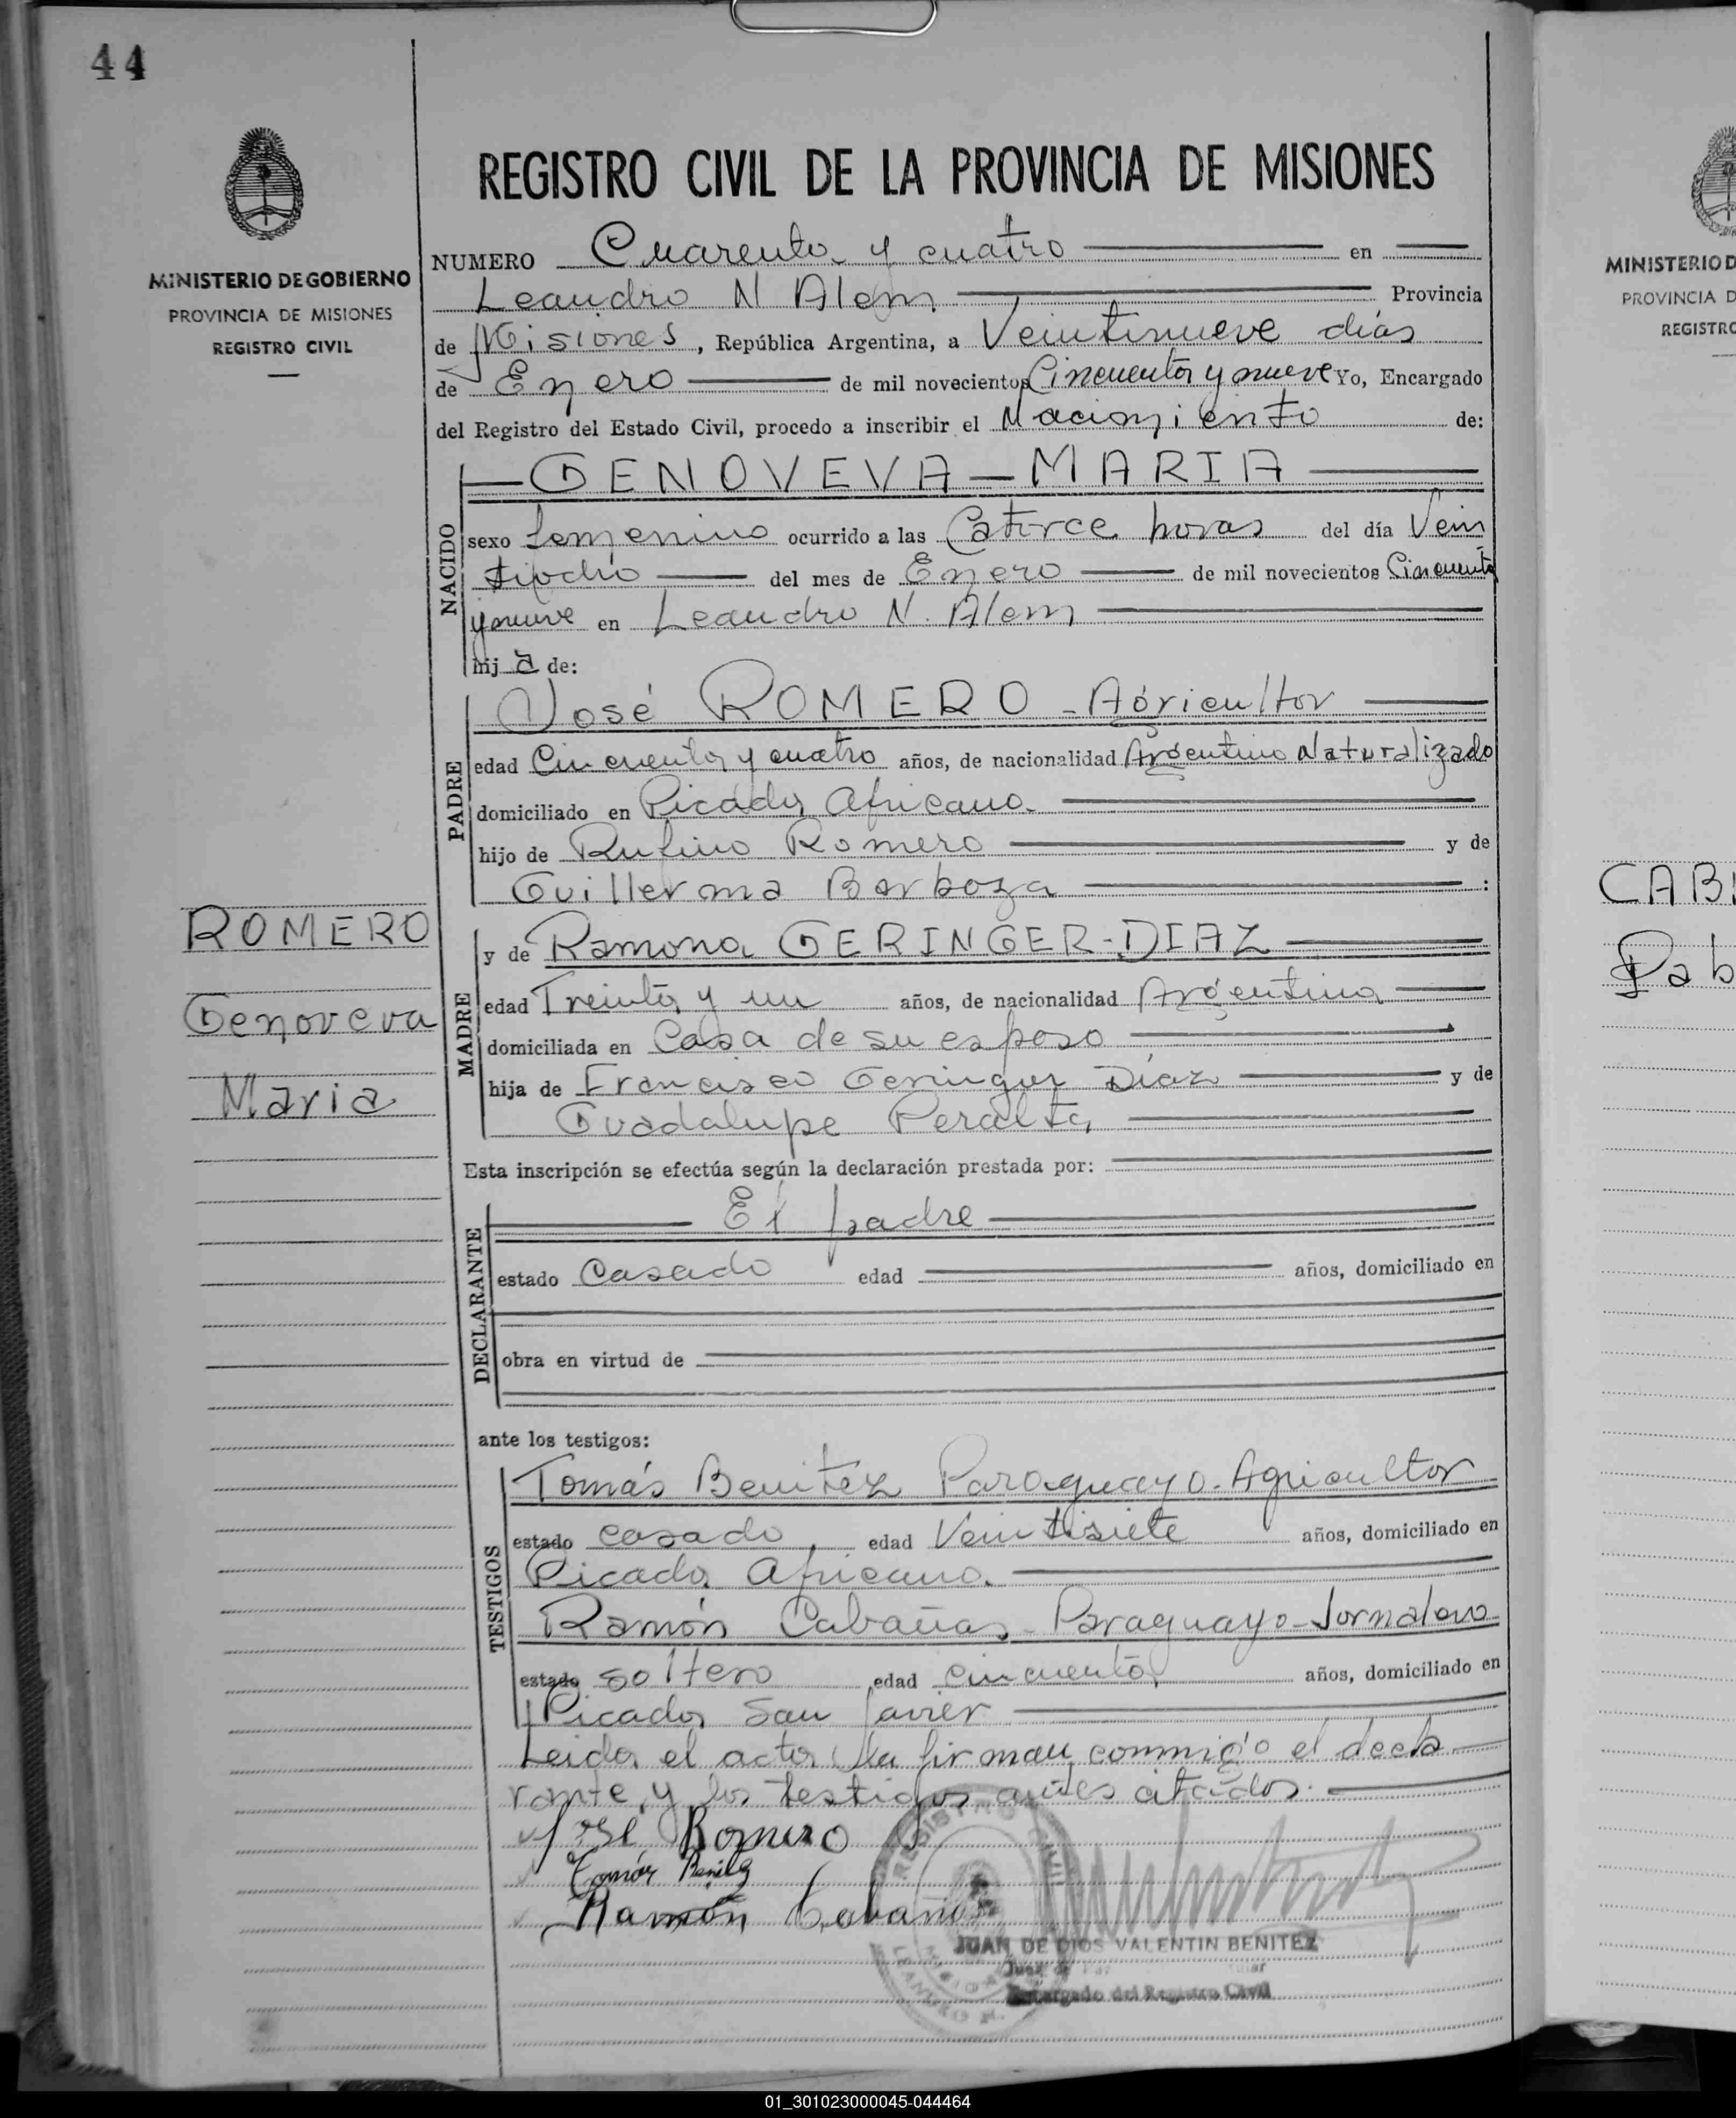 44
MINISTERIO DE GOBIERNO
PROVINCIA DE MISIONES
REGISTRO CIVIL
REGISTRO CIVIL DE LA PROVINCIA DE MISIONES
NUMERO Cuarenta y cuatro en
Leandro N Alem Provincia
de Misiones, República Argentina, a Veintinueve días
de Enero de mil novecientos Cincuenta y nueve Yo, Encargado
del Registro del Estado Civil, procedo a inscribir el Nacimiento de:
NACIDO
GENOVEVA-MARIA
sexo femenino ocurrido a las Catorce horas del día Vein
tiocho del mes de Enero de mil novecientos Cincuenta
y nueve en Leandro N. Alem
hij a de:
PADRE
José ROMERO - Agricultor
edad Cincuenta y cuatro años, de nacionalidad Argentino Naturalizado
domiciliado en Picada Africana
hijo de Rufino Romero y de
Guillerma Barboza :
ROMERO
Genoveva
Maria
MADRE
y de Ramona GERINGER-DIAZ
edad Treinta y un años, de nacionalidad Argentina
domiciliada en Casa de su esposo
hija de Francisco Geringer Díaz y de
Guadalupe Peralta
Esta inscripción se efectúa según la declaración prestada por:
DECLARANTE
El padre
estado Casado edad años, domiciliado en
obra en virtud de
ante los testigos:
TESTIGOS
Tomás Benítez Paraguayo-Agricultor
estado casado, edad Veintisiete años, domiciliado en
Picada Africana
Ramón Cabañas-Paraguayo-Jornalero
estado soltero edad cincuenta años, domiciliado en
Picada San Javier
Leida el acta, la firman conmigo el decla
rante, y los testigos antes citados.
José Romero
Tomás Benitez
Ramón Cabaña
REGISTRO CIVIL
JUAN DE DIOS VALENTIN BENITEZ
Juez de Paz
Encargado del Registro Civil
MINISTERIO D
PROVINCIA D
REGISTRO
CAB
Pab
01_301023000045-044464